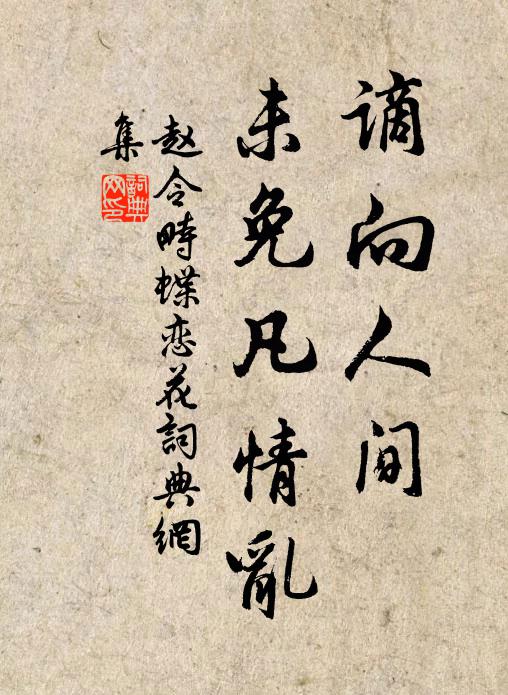 谪向人间
未免凡情亂
赵令畤蝶恋花詞典網
集
詞典网印